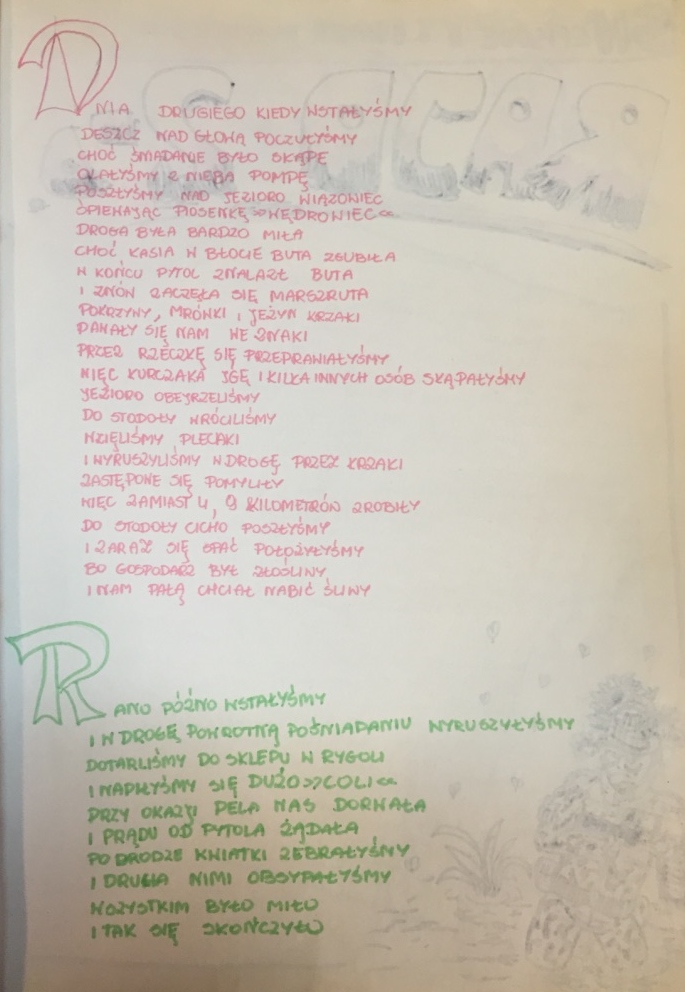 DNIA DRUGIEGO KIEDY WSTAŁYŚMY
DESZCZ NAD GŁOWĄ POCZUŁYŚMY
CHOĆ ŚNIADANIE BYŁO SKĄPE
OLAŁYŚMY Z NIEBA POMPĘ
POSZŁYŚMY NAD JEZIORO WIĄZOWIEC
OPIEWAJĄC PIOSENKĘ »WĘDROWIEC«
DROGA BYŁA BARDZO MIŁA
CHOĆ KASIA W BŁOCIE BUTA ZGUBIŁA
W KOŃCU PYTOL ZNALAZŁ BUTA
I ZNÓW ZACZĘŁA SIĘ MARSZRUTA
POKRZYWY, MRÓWKI I JEŻYN KRZAKI
DAWAŁY SIĘ NAM WE ZNAKI
PRZEZ RZECZKĘ SIĘ PRZEPRAWIAŁYŚMY
WIĘC KURCZAKA IGĘ I KILKA INNYCH OSÓB SKĄPAŁYŚMY
JEZIORO OBEJRZELIŚMY
DO STODOŁY WRÓCILIŚMY
WZIĘLIŚMY PLECAKI
I WYRUSZYLIŚMY W DROGĘ PRZEZ KRZAKI
ZASTĘPOWE SIĘ POMYLIŁY
WIĘC ZAMIAST 4, 9 KILOMETRÓW ZROBIŁY
DO STODOŁY CICHO POSZŁYŚMY
I ZARAZ SIĘ SPAĆ POŁOŻYŁYŚMY
BO GOSPODARZ BYŁ ZŁOŚLIWY
I NAM PAŁĄ CHCIAŁ NABIĆ ŚLIWY
RANO PÓŹNO WSTAŁYŚMY
I W DROGĘ POWROTNĄ PO ŚNIADANIU WYRUSZYŁYŚMY
DOTARLIŚMY DO SKLEPU W RYGOLI
I NAPIŁYŚMY SIĘ DUŻO »COLI«
PRZY OKAZJI PELA NAS DORWAŁA
I PRĄDU OD PYTOLA ŻĄDAŁA
PO DRODZE KWIATKI ZEBRAŁYŚMY
I DRUHA NIMI OBSYPAŁYŚMY
WSZYSTKIM BYŁO MIŁO
I TAK SIĘ SKOŃCZYŁO